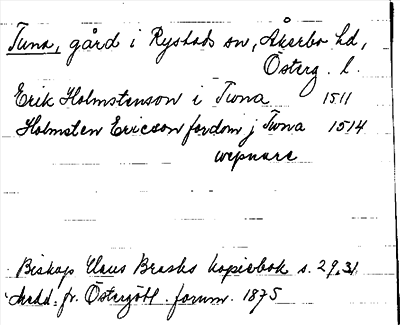 Tuna, gård i Rystads sn, Åkerbo hd,
Österg. l.
Erik Holmstenson i Twna 1511
Holmsten Ericson fordom j Twna 1514
wepnare
Biskop Hans Brasks kopiebok s. 29, 31
Medd. fr. Östergötl. fornm. 1875